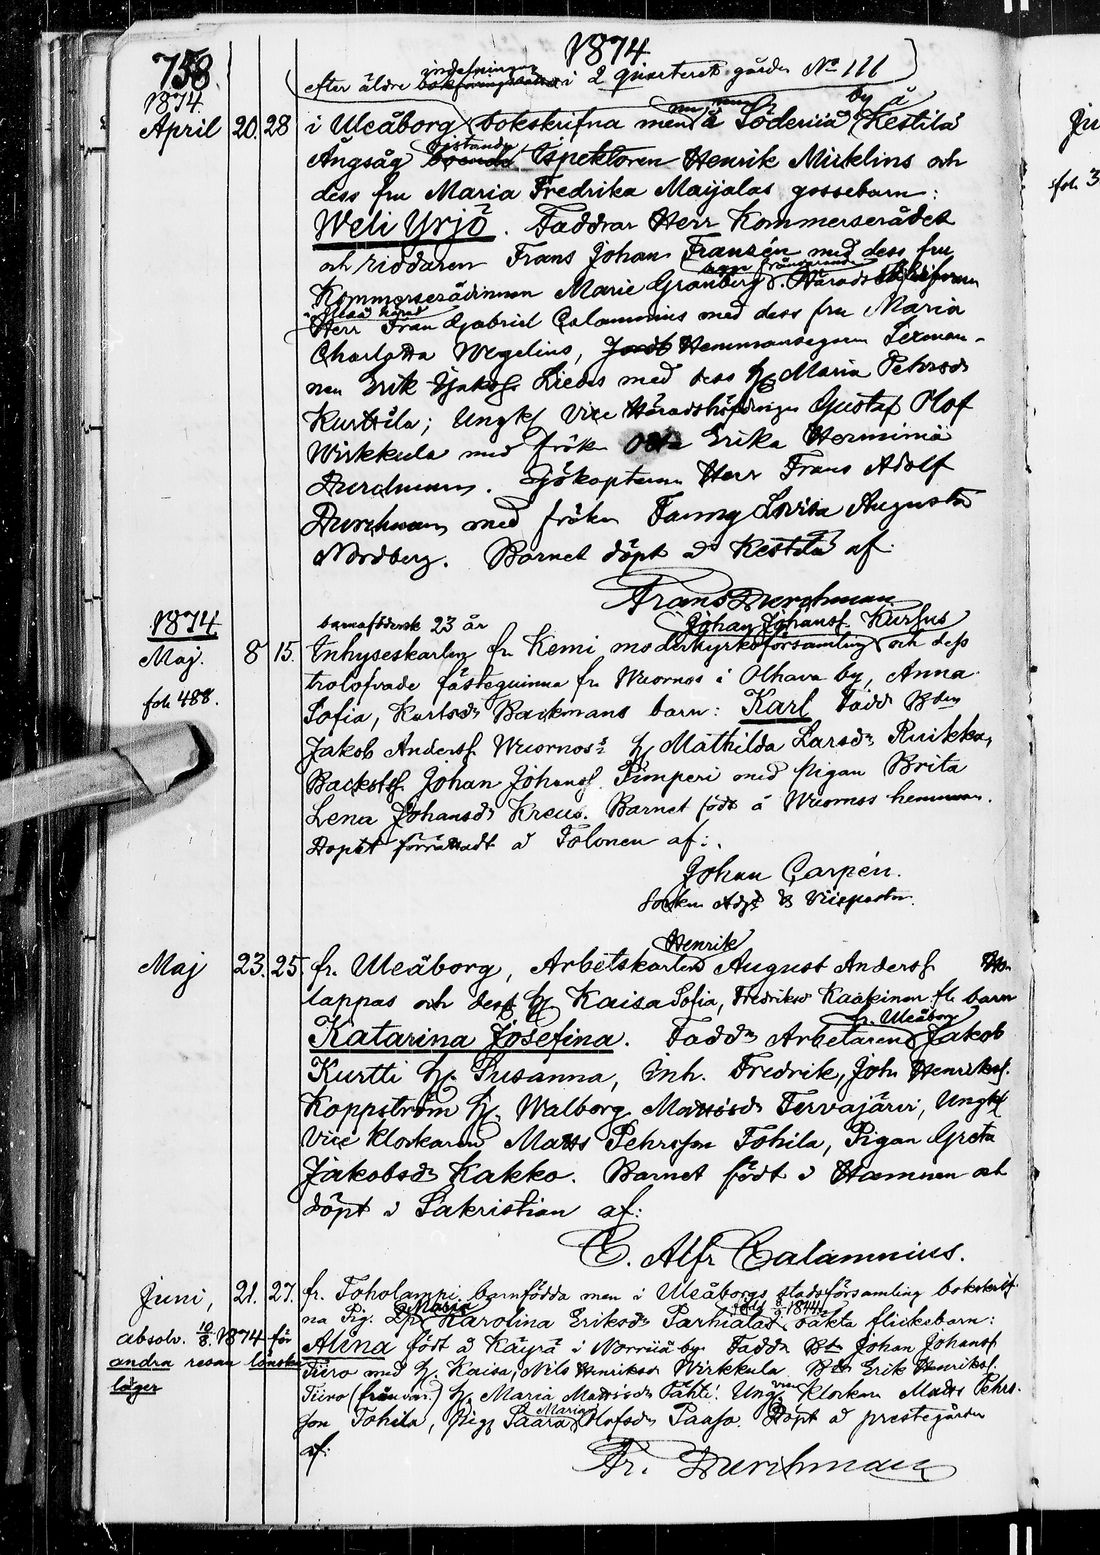 758
1874
efter äldre indelningen i 2 quarteret gården No 111
1874
April 20. 28 i Uleåborg bokskrifna men nu å Söderiiå by å Kestilä
Ångsåg boende Inspektoren Henrik Mirklins och
dess fru Maria Fredrika Maijalas gossebarn:
Weli Yrjö. Faddrar Herr Kommerserådet
och riddaren Frans Johan Franzén med dess fru
Kommerserådinnan Marie Granberg. Härads
Herr Fran Gabriel Calamnius med dess fru Maria
Charlotta Wegelius, Hemmansegaren Sexman-
nen Erik Jakobss Liedes med dess H Maria Pehrsdr
Kurttila; Ungk. Vice Häradshöfdingen Gustaf Olof
Wirkkula med fröken Erika Hermimia
Durchman. Sjökaptenen Herr Frans Adolf
Durchman med fröken Fanny Lovisa Augusta
Nordberg. Barnet döpt å Kestilä af:
Frans Durchman
1874
barnafödersk 23 år Johan Johansf. Kurfus
Maj. 8 15. Inhyseskarlen fr Kemi moderkyrkoförsamling och dess
trolofvade fästeqvinna fr Wuornos i Olhava by, Anna
foli 488. Sofia, Kurtsdr Backmans barn: Karl Fadd Bden
Jakob Andersf. Wuornos: H Mathilda Larsdr Ruikka,
Backstf Johan Johansf. Pimperi med pigan Brita
Lena Johansdr Kreus. Barnet födt å Wuornos hemman.
Dopet förrättadt å Tolonen af:
Johan Carpén.
Socken Adjt & Vicepastor.
Maj 23. 25. fr. Uleåborg, Arbetskarlen Henrik August Andersf.
lappas och dess H Kaisa Sofia, Fredriksdr Kaakinen fl. barn
Katarina Josefina. Faddr Arbetaren fr. Uleåborg Jakob
Kurtti H. Susanna, Inh. Fredrik, Joh. Henriksf.
Koppström H. Walborg Mattsdr Tervajärvi, Ungk
Vice klockaren Matts Pehrsson Tohila, Pigan Greta
Jakobsdr Kakko. Barnet födt i Hamnen och
döpt i Sakristian af:
C. Alfr Calamnius.
Juni, 21. 27. fr. Toholampi barnfödda men i Uleåborgs stadsförsamling bokskrif-
na Pig. Maria Karolina Eriksdr Parhialas oäkta flickebarn:
absolv. 10/8. 1874 för Alina född å Käyrä i Norriiå by. Fadd Joh Johan Johansf
andra resan lönska Tiiro med H. Kaisa, Nils Henriksdr Wirkkula Erik Henriksf.
läger Tiiro (frånvar.) H. Maria Mattsdr Tähti. Ungk vice Klockaren Matts Pehrs-
son Tohila, Pig. Saara Maria Olofsdr Paaso. Döpt å prestegården
af:
Fr. Durchman